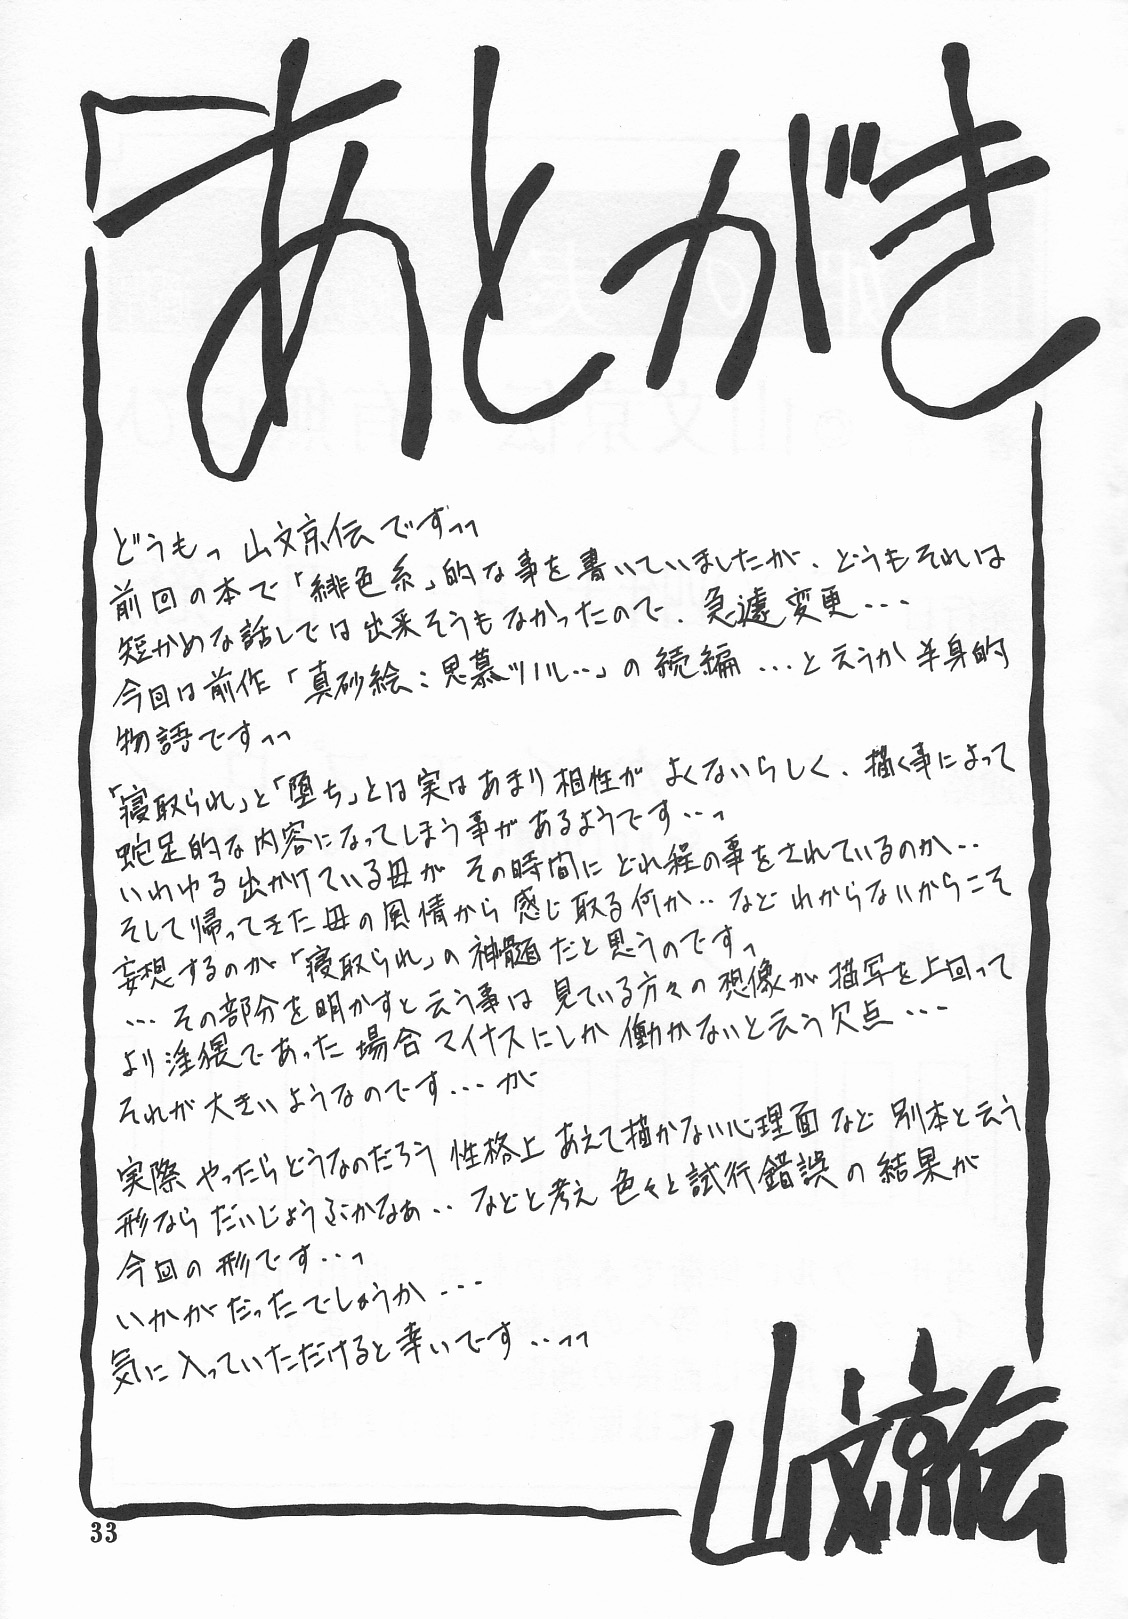 あとがき
どうもっ 山文京伝ですっっ
前回の本で「緋色系」的な事を書いていましたが、どうもそれは
短かめな話しでは出来そうもなかったので、急遽変更･･･
今回は前作「真砂絵：思慕ツノル…」の続編 …と云うか 半身的
物語ですっっ
「寝取られ」と「堕ち」とは実はあまり相性が よくないらしく、描く事によって
蛇足的な内容になってしまう事があるようです…っ
いわゆる出かけている母が その時間に どれ程の事をされているのか‥
そして帰ってきた母の風情から感じ取る何か‥など わからないからこそ
妄想するのが「寝取られ」の神髄だと思うのですっ
…その部分を明かすと云う事は 見ている方々の想像が描写を上回って
より淫猥であった場合マイナスにしか働かないと云う欠点･･･
それが大きいようなのです…が
実際やったらどうなのだろう 性格上 あえて描かない心理面など 別本と云う
形なら だいじょうぶかなぁ‥などと考え 色々と試行錯誤の結果が
今回の形です…っ
いかがだったでしょうか･･･
気に入っていただけると幸いです…っっ
山文京伝
33